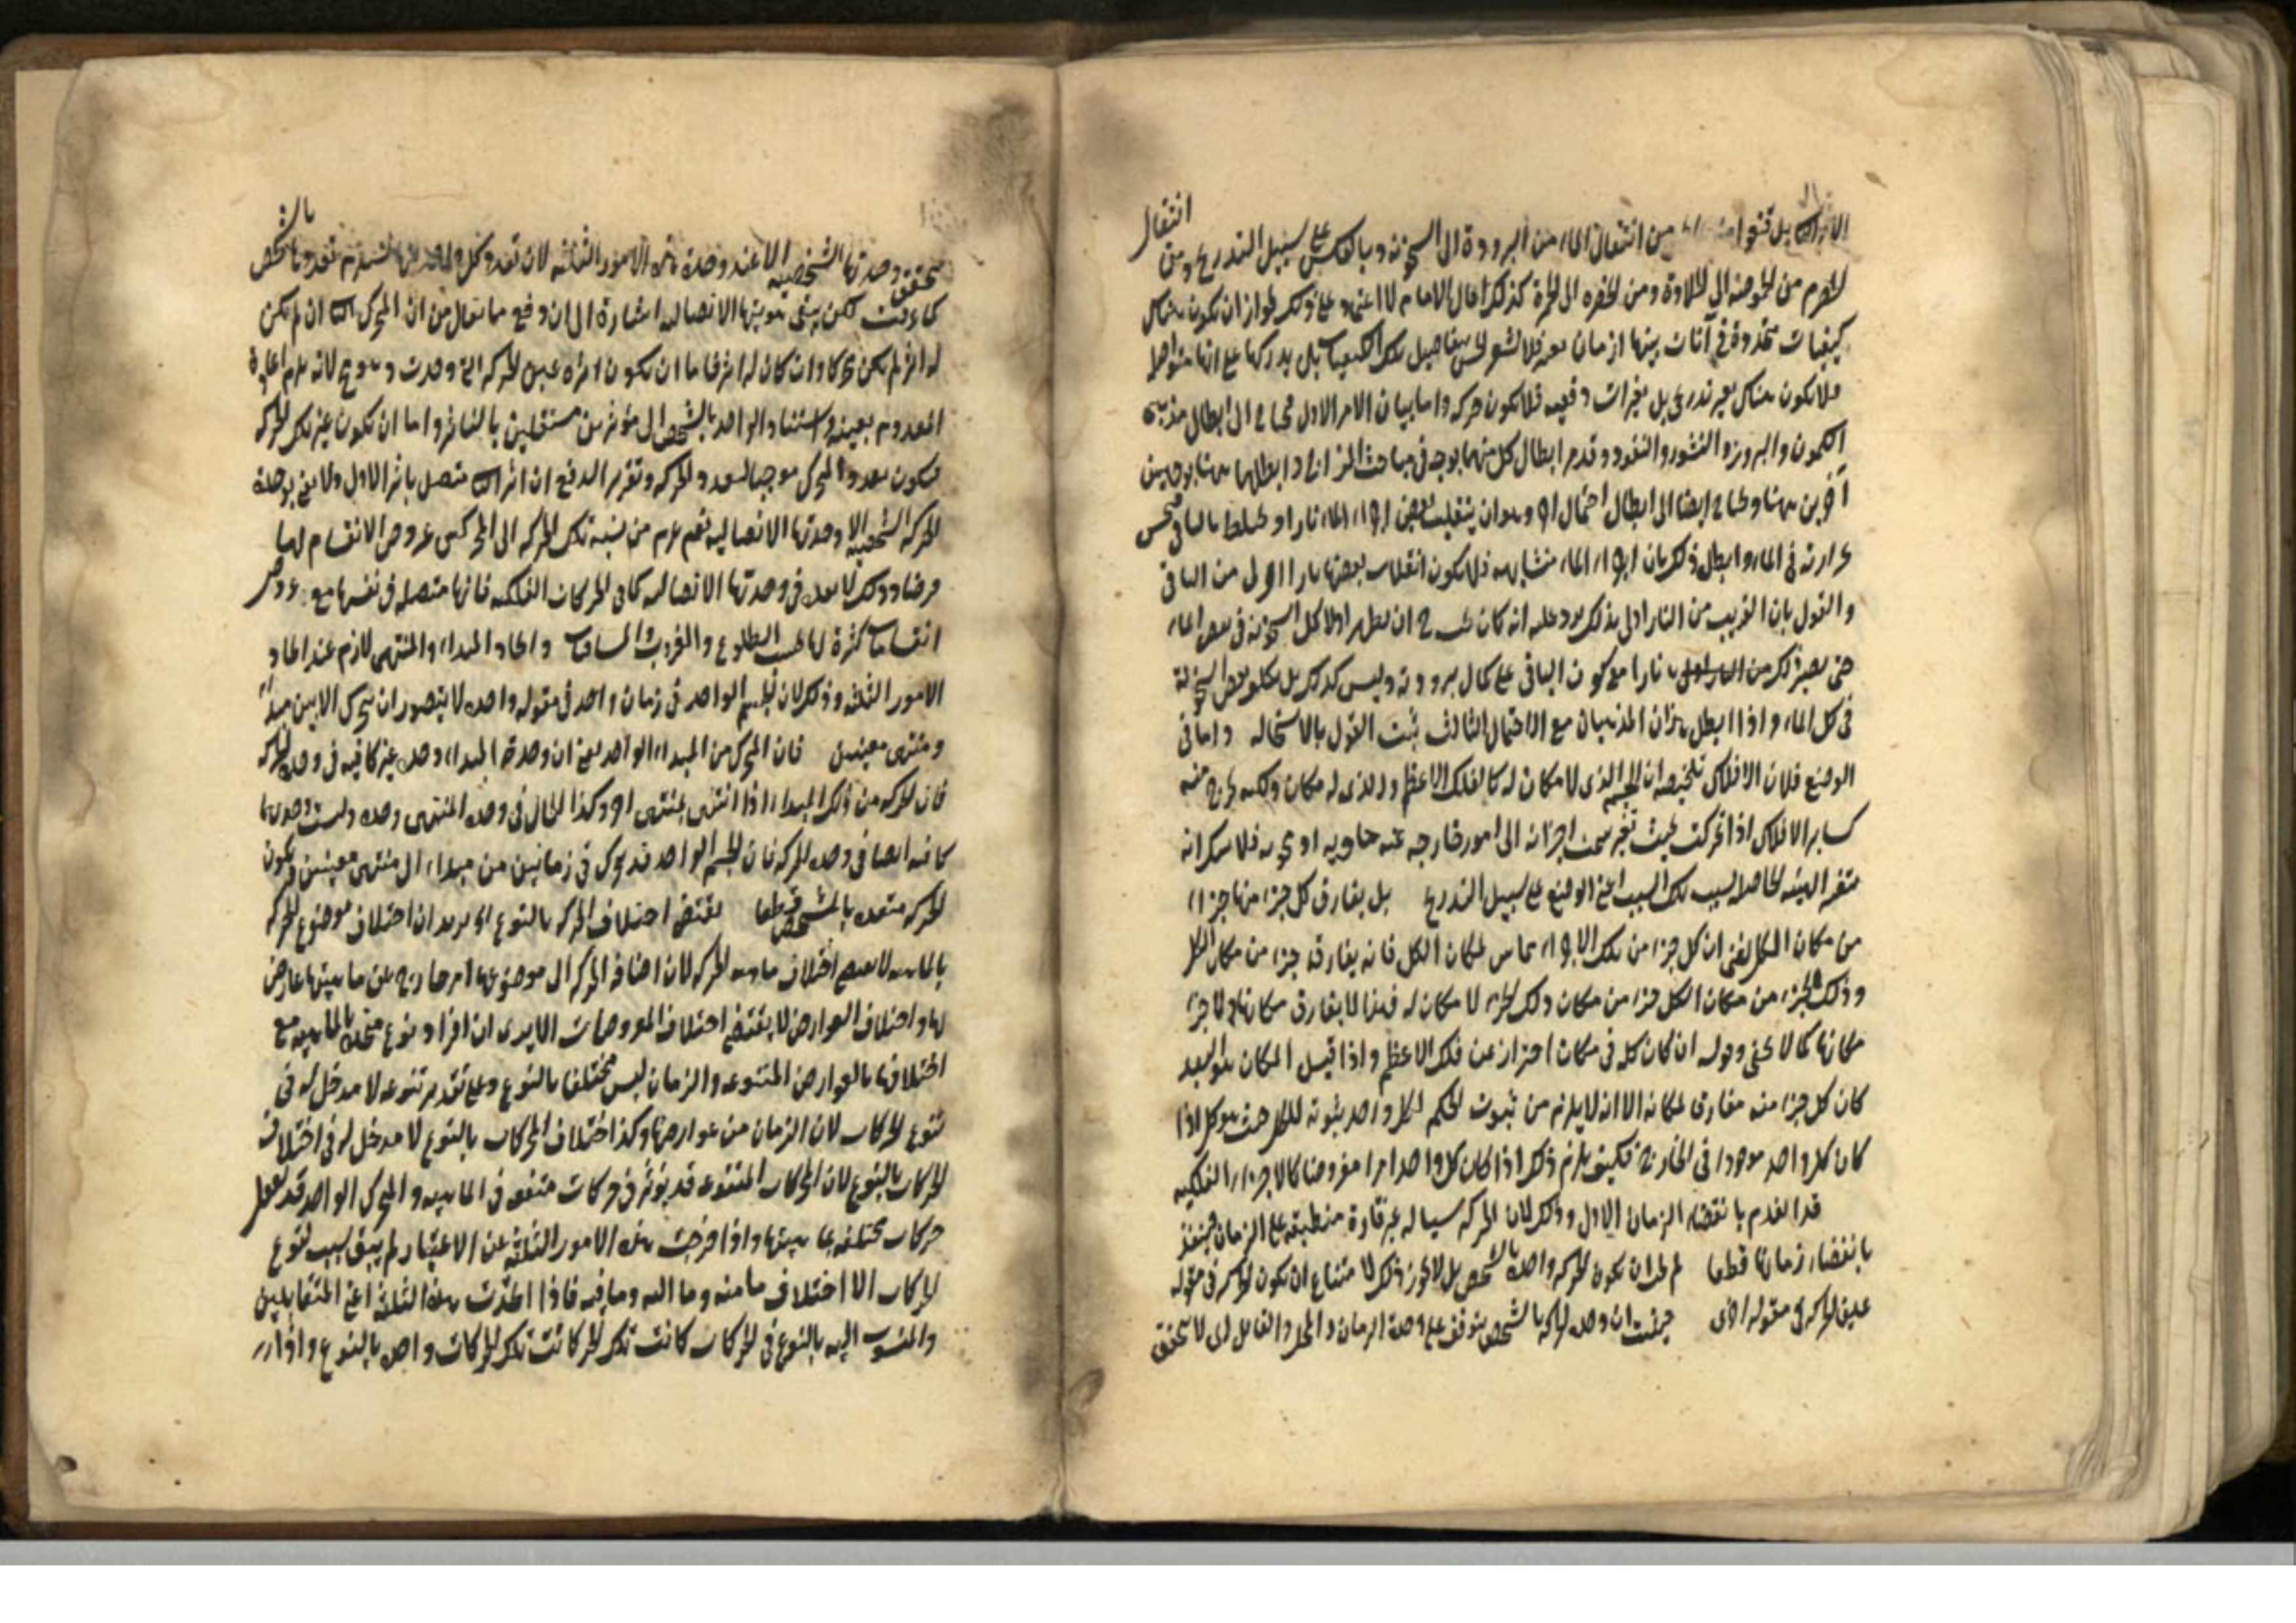 انتقال
بل من انتقال الماء من البرودة الى السخونة وبالعكس على سبيل التدريج ومن
الحصرم من الحموضة الى الحلاوة ومن الخضرة الى الحمرة كذلك قال الامام لا اعتماد على ذلك لجواز ان يكون هناك
كيفيات متحددة في آنات بينها ازمان فلا يشعر الحس بتفاصيل تلك الكيفيات بل يدركها على انها متواصلة
فلا يكون هناك تغير تدريجي بل تغيرات دفعية فلا يكون حركة واما بيان الامر الاول محتاج الى ابطال مذهبى
الكمون والبروز والنشور والنفوذ وقد مر ابطال كل منهما بوجه في مباحث المزاج وابطلهما هنا بوجهين
آخرين هنا ويحتاج ايضا الى ابطال احتمال آخر وهو ان ينقلب بعض اجزاء الماء نارا ويختلط بالباقي فيحس
حرارته في الماء وابطل ذلك بان اجزاء الماء متشابهة فلا يكون انقلاب بعضها نارا اولى من الباقي
والقول بان القريب من النار اولى بذلك يرد عليه انه كان يجب ح ان يظهر اولا كل السخونة في بعض الماء
حتى يصير ذلك من نارا مع كون الباقي على كمال برودته وليس كذلك بل يظهر بعض السخونة
في كل الماء واذا ابطل هذان المذهبان مع الاحتمال الثالث ثبت القول بالاستحالة واما في
الوضع فلان الافلاك تلخيصه ان الجسم الذي لا مكان له كالفلك الاعظم والذي له مكان ولكنه لا يخرج منه
كساير الافلاك اذا تحركت بحيث تغير سمت اجزائه الى امور خارجة عنه حاوية او محوية فلا شك انه
يتغير الهيئة الحاصلة بسبب تلك النسب اعني الوضع على سبيل التدريج بل يفارق كل جزء منها جزءا
من مكان الكل يعني ان كل جزء من تلك الاجزاء مماس لمكان الكل فانه يفارقه جزء من مكان الكل
وذلك الجزء من مكان الكل جزء من مكان ذلك الجزء لا مكان له فهذا لا يفارق مكانها ولا جزء
مكانها كما لا يخفى وقوله ان كان كله في مكان احتراز عن فلك الاعظم واذا قيل المكان هو البعد
كان كل جزء منه مفارق لمكانه الا انه لا يلزم من ثبوت الحكم لكل واحد ثبوته للكل حيث هو كل اذا
كان كل واحد موجودا في الخارج فكيف يلزم ذلك اذا كان كل واحد امرا مفروضا كالاجزاء الفلكية
قد انعدم بانقضاء الزمان الاول وذلك لان الحركة سيالة غير قارة منطبقة على الزمان فينعدم
بانقضاء زمانها قطعا لم لا يجوز ان يكون الحركة واحدة بالشخص بل لا يجوز ذلك لامتناع ان يكون الحركة في مقولة
عين الحركة في مقولة اخرى حيث ان وحدة الحركة بالشخص يتوقف على وحدة الزمان والمحل والفاعل لا يتحقق
تحقق وحدتها الشخصية الا عند وحدة هذه الامور الثلثة لان تعدد كل واحد منها يستلزم تعددها بالشخص
كما عرفت لكن يبقى هويتها الاتصالية اشارة الى دفع ما يقال من ان المحرك ان لم يكن
له اثر لم يكن محركا وان كان له اثر فاما ان يكون اثره عين الحركة التي وجدت وهو مح لانه يلزم اعادة
المعدوم بعينه واستناد الواحد بالشخص الى مؤثرين مستقلين بالتاثير واما ان يكون غير تلك الحركة
فيكون تعدد المحرك موجبا لتعدد الحركة وتقرير الدفع ان اثره متصل باثر الاول ولا نعني بوحدة
الحركة الشخصية الا وحدتها الاتصالية نعم يلزم من نسبة تلك الحركة الى المحركين عروض الانقسام لها
فرضا وذلك لا يقدح في وحدتها الاتصالية كما في الحركات الفلكية فانها متصلة في نفسها مع عروض
انقسامات كثيرة لها بحسب الطلوع والغروب والمسامتات واتحاد المبداء والمنتهى لازم عند اتحاد
الامور الثلثة وذلك لان الجسم الواحد في زمان واحد في مقولة واحدة لا يتصور ان يتحرك الا بين مبداء
ومنتهى معينين فان المتحرك من المبداء الواحد يعني ان وحدة المبداء وحده غير كافية في وحدة الحركة
فان الحركة من ذلك المبداء اذا انتهى لمنتهى آخر وكذا الحال في وحدة المنتهى وحده وليست وحدتهما
كافية ايضا في وحدة الحركة فان الجسم الواحد قد يتحرك في زمانين من مبداء الى منتهى معينين فيكون
الحركة متعددة بالشخص قطعا يقتضي اختلاف الحركة بالنوع اى يريد ان اختلاف موضوع الحركة
بالماهية لا يقتضي اختلاف ماهية الحركة لان اضافة الحركة الى موضوعها امر خارج عن ماهيتها عارض
لها واختلاف العوارض لا يقتضي اختلاف المعروضات الا يرى ان افراد نوع متحدة بالماهية مع
اختلافها بالعوارض المتنوعة والزمان ليس مختلفا بالنوع وعلى تقدير تنوعه لا مدخل له في
تنوع الحركات لان الزمان من عوارضها وكذا اختلاف المحركات بالنوع لا مدخل له في اختلاف
الحركات بالنوع لان المحركات المتنوعة قد يؤثر في حركات متفقة في الماهية والمحرك الواحد قد يفعل
حركات مختلفة بماهيتها واذا خرجت هذه الامور الثلثة عن الاعتبار لم يبق سبب لتنوع
الحركات الا اختلاف ما منه وما اليه وما فيه فاذا اتحدت هذه الثلثة اعني المتقابلين
والمنسوب اليه بالنوع في الحركات كانت تلك الحركات واحدة بالنوع واذا